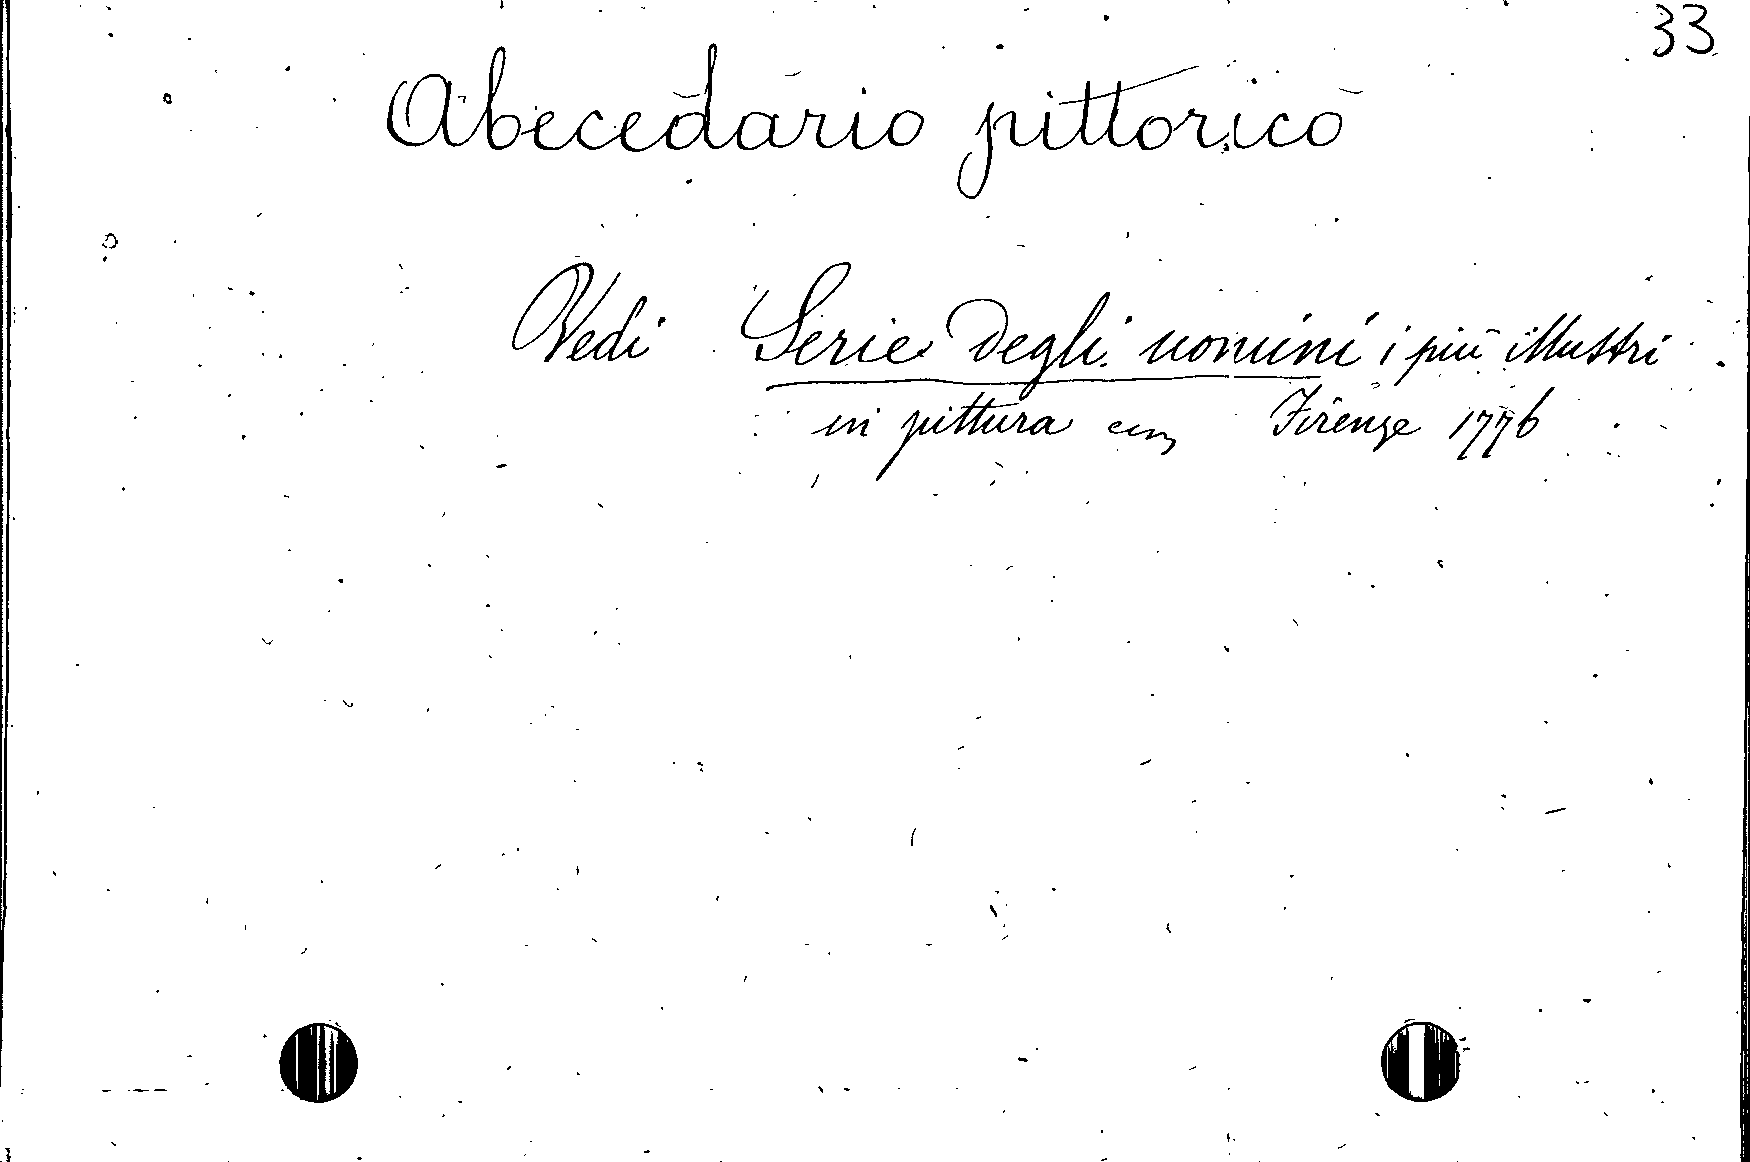 33
Abecedario pittorico
Vedi Serie degli uomini i più illustri
in pittura Firenze 1776